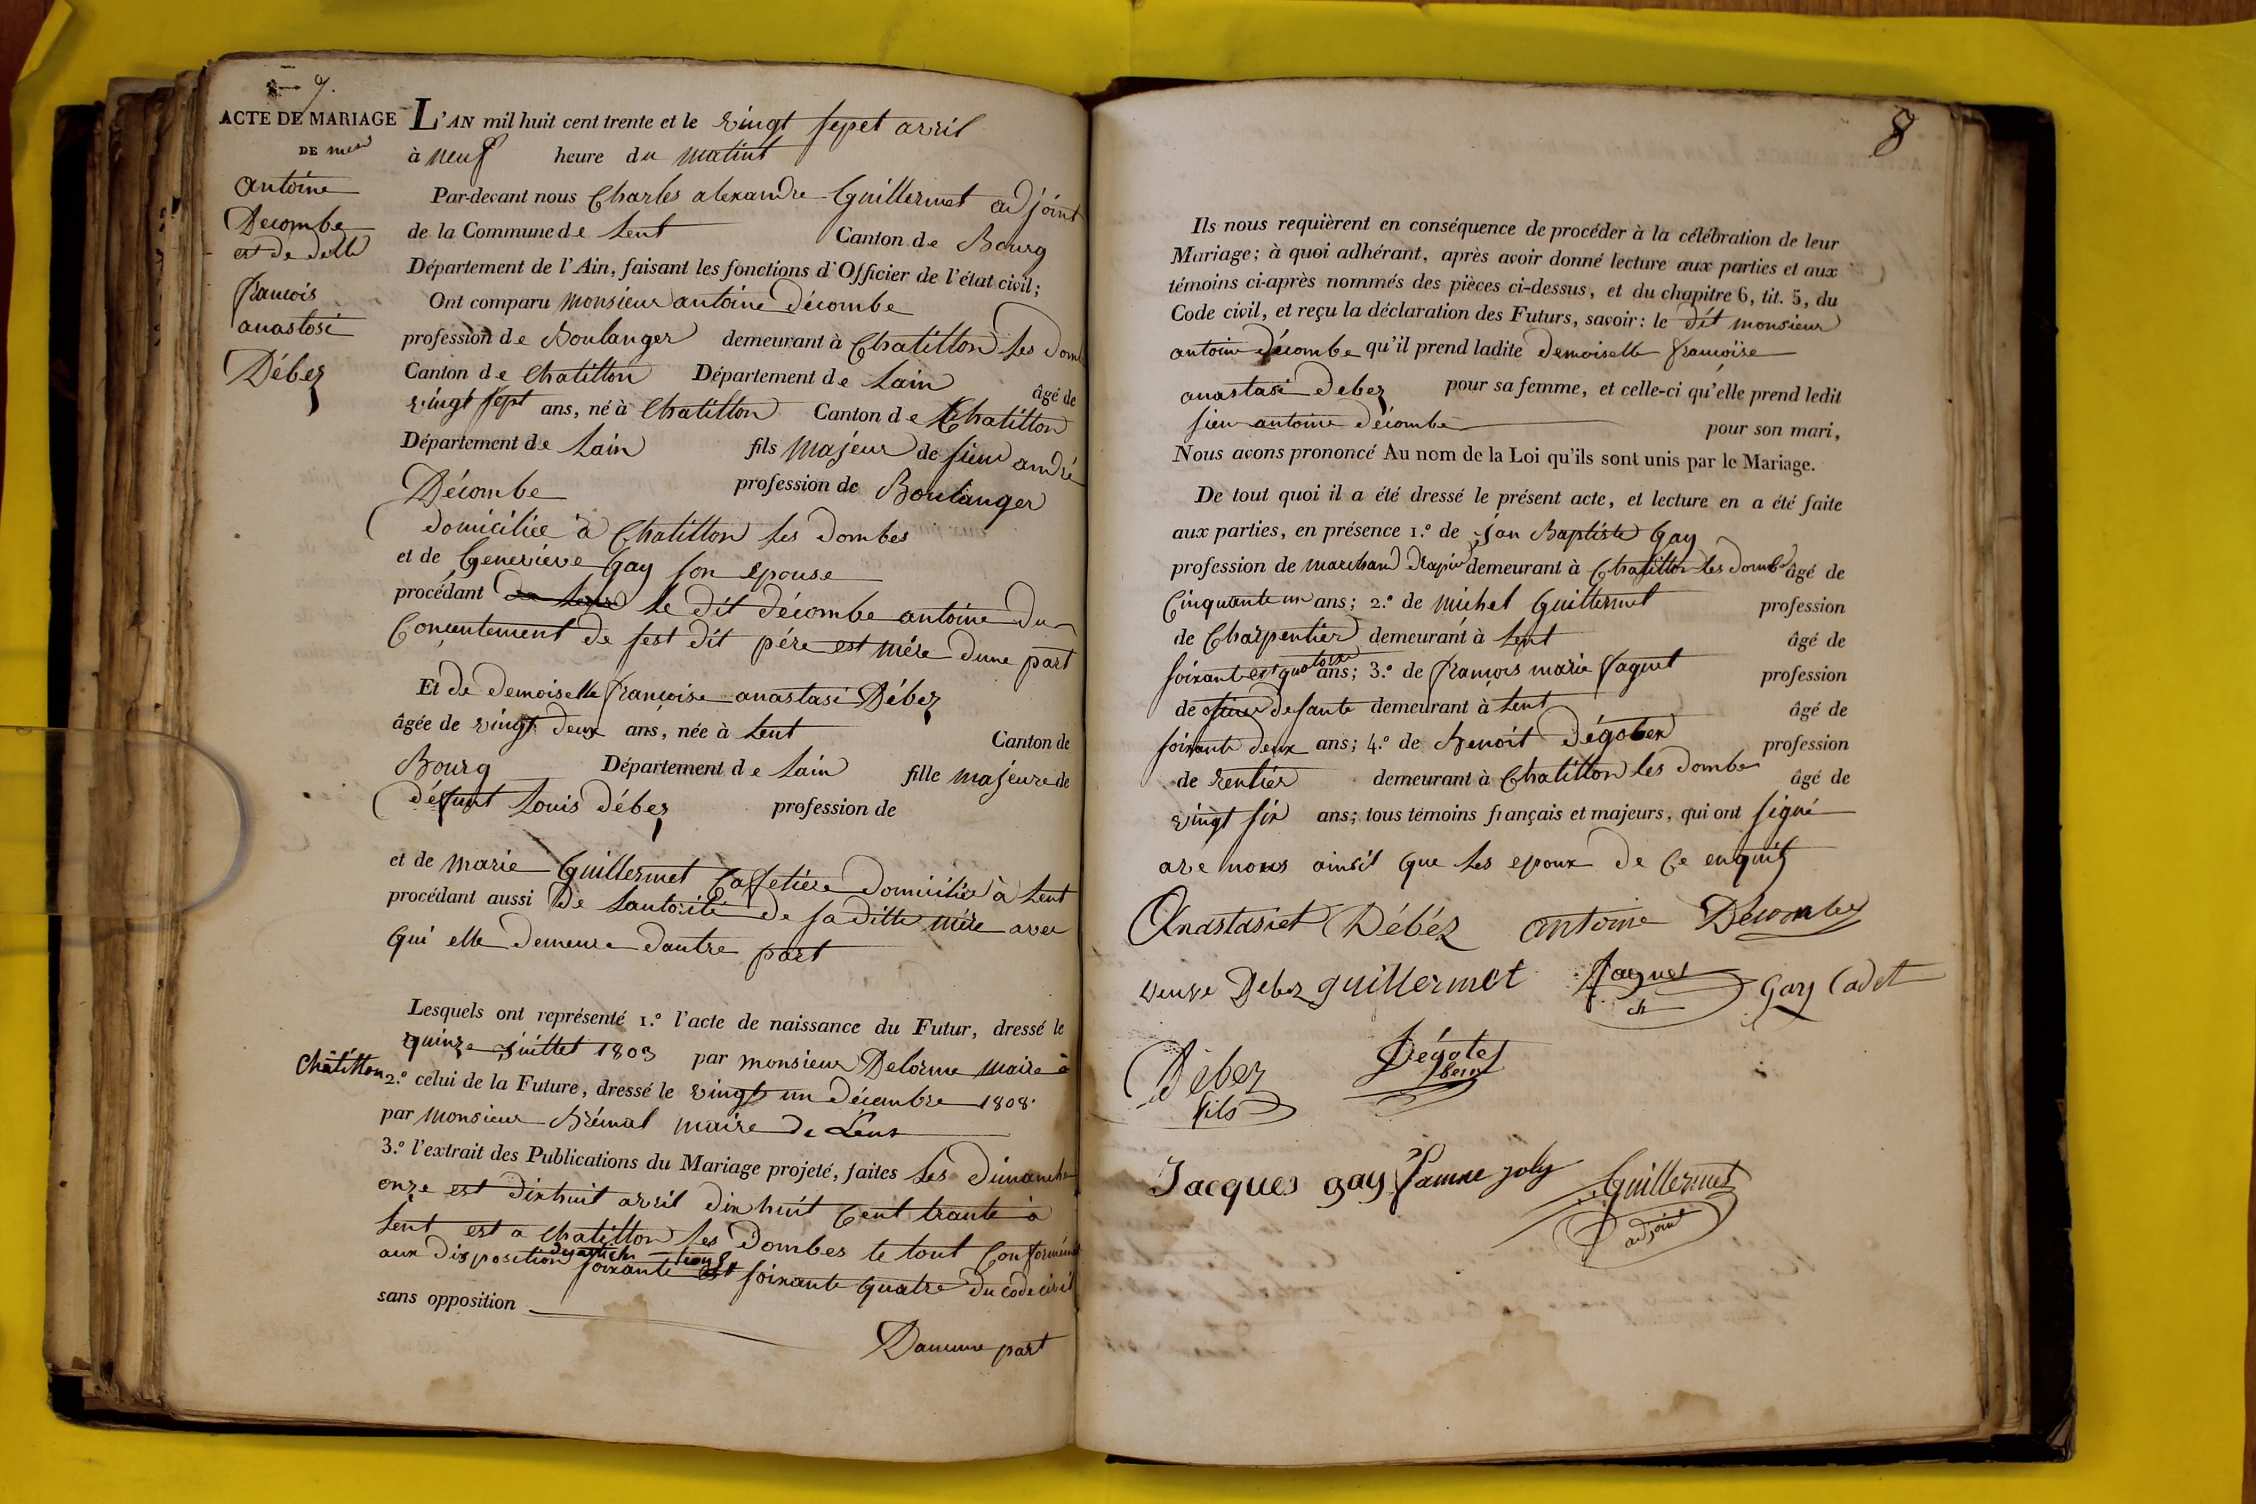 9.
ACTE DE MARIAGE
DE mer
antoine
Decombe
et de delle
francois
anastosi
Débez
L'AN mil huit cent trente et le vingt sepet avril
à neuf heure du matint
Par-devant nous Charles alexandre Guillermet adjoint
de la Commune de Lent Canton de Bourg
Département de l'Ain, faisant les fonctions d'Officier de l'état civil;
Ont comparu monsieur antoine décombe
profession de Boulanger demeurant à Chatillon les domb
Canton de Chatillon Département de Lain âgé de
vingt sept ans, né à Chatillon Canton de Chatillon
Département de Lain fils majeur de sieur andré
Décombe profession de Boulanger
domiciliée à Chatillon les dombes
et de Genevieve Gay son epouse
procédant le dit décombe antoine du
Conçentement de sest dit pére est mére dune part
Et de demoiselle françoise anastasi Débez
âgée de vingt deux ans, née à Lent Canton de
Bourg Département de Lain fille majeure de
défunt Louis débez profession de
et de marie Guillermet Caffetière domiciliée à Lent
procédant aussi de Lautorité de sa ditte mére avec
qui elle demeure dautre part
Lesquels ont représenté 1.º l'acte de naissance du Futur, dressé le
quinze juillet 1803 par monsieur Delorme maire à
Châtillon 2.º celui de la Future, dressé le vingt un décembre 1808.
par monsieur Brémal maire de Lent
3.º l'extrait des Publications du Mariage projeté, faites les dimanche
onze est dixhuit avril dix huit Cent trante à
Lent est a chatillon les Dombes le tout Conformément
aux disposition des articles soixante trois est soixante quatre du code civil
sans opposition
Daucune part
8
Ils nous requièrent en conséquence de procéder à la célébration de leur
Mariage; à quoi adhérant, après avoir donné lecture aux parties et aux
témoins ci-après nommés des pièces ci-dessus, et du chapitre 6, tit. 5, du
Code civil, et reçu la déclaration des Futurs, savoir: le dit monsieur
antoine décombe qu'il prend ladite demoiselle francoise
anastasi debez pour sa femme, et celle-ci qu'elle prend ledit
sieur antoine décombe pour son mari,
Nous avons prononcé Au nom de la Loi qu'ils sont unis par le Mariage.
De tout quoi il a été dressé le présent acte, et lecture en a été faite
aux parties, en présence 1.º de jan Baptiste Gay
profession de marchand drapié demeurant à Chatillon les domb âgé de
Cinquante un ans; 2.º de michel Guillermet profession
de Charpentier demeurant à Lent âgé de
soixant est quatorze ans; 3.º de françois marie faguet profession
de oficier de sante demeurant à Lent âgé de
soixante deux ans; 4.º de Benoit Dégotex profession
de rentier demeurant à Chatillon les dombe âgé de
vingt six ans; tous témoins français et majeurs, qui ont signé
ave nous ainsil que les epoux de Ce enquis
Anastasiet Débéz antoine Decombe
veuve Debez guillermet faguet ch Gay Cadet
Débez fils Dégotex
Jacques gay famne joly Guillermet
adjoint